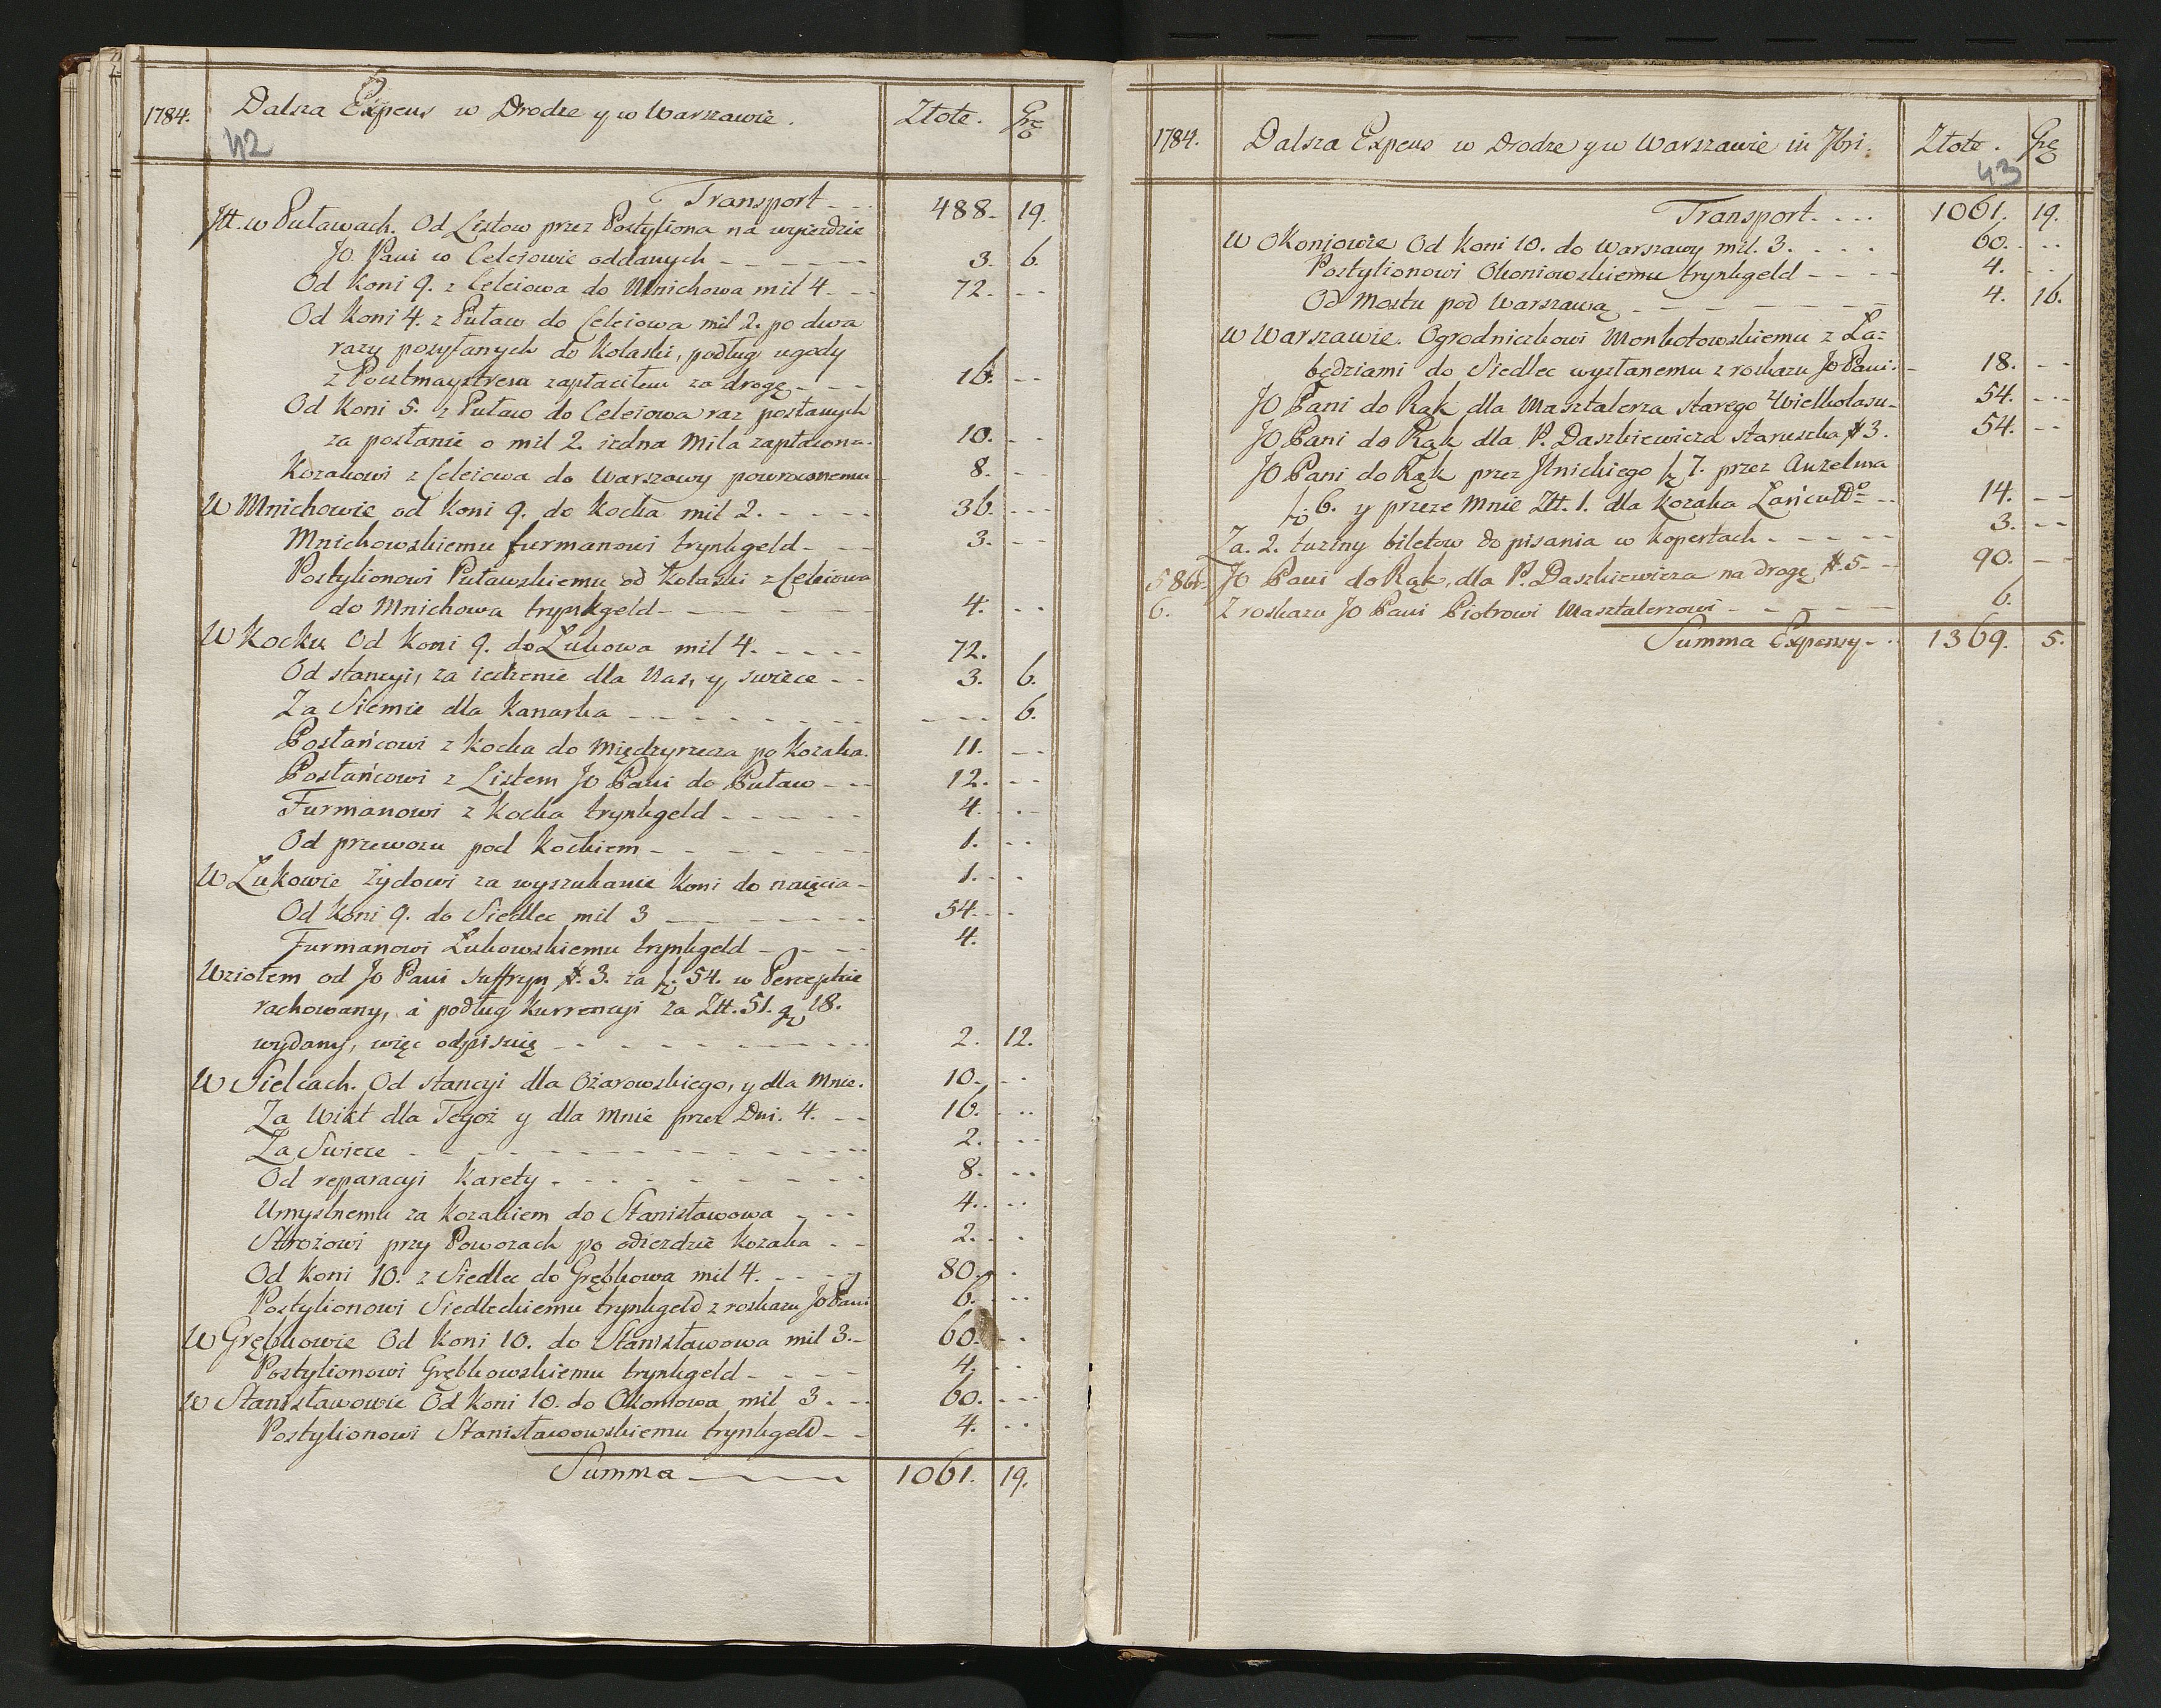 1784. Dalsza Expens w Drodze y w Warszawie. Złote. Grꝫ
42
Transport 488. 19.
Itt. w Puławach. Od Listow przez Postyliona na wyiezdzie
JO Pani w Celeiowie oddanych 3. 6.
Od Koni 9. z Celeiowa do Mnichowa mil 4. 72.
Od Koni 4. z Puław do Celeiowa mil 2. po dwa
razy posyłanych do Kolaski, podług ugody
z Pocztmaystrem zapłaciłem za drogę 16.
Od Koni 5. z Puław do Celeiowa raz posłanych
za posłanie o mil 2. iedna Mila zapłacona. 10.
Kozakowi z Celeiowa do Warszawy powroconemu 8.
W Mnichowie od Koni 9. do Kocka mil 2. 36.
Mnichowskiemu furmanowi trynkgeld 3.
Postylionowi Puławskiemu od Kolaski z Celeiowa
do Mnichowa trynkgeld 4.
W Kocku Od Koni 9. do Łukowa mil 4. 72.
Od stancyi, za iedzenie dla Nas, y swiece 3. 6.
Za Siemie dla Kanarka 6.
Posłańcowi z Kocka do Międzyrzecza po Kozaka. 11.
Posłańcowi z Listem JO Pani do Puław 12.
Furmanowi z Kocka trynkgeld 4.
Od przewozu pod Kockiem 1.
W Łukowie Żydowi za wyszukanie Koni do naięcia 1.
Od Koni 9. do Siedlec mil 3 54.
Furmanowi Łukowskiemu trynkgeld 4.
Wziołem od JO Pani #. 3. za 54. w Percepcie
rachowany, á podług Kurrencyi za Ztt. 51. g 18.
wydany, więc odpisuię 2. 12.
W Sielcach. Od stancyi dla Ożarowskiego, y dla Mnie. 10.
Za Wikt dla Tegoż y dla Mnie przez Dni. 4. 16.
Za Swiece 2.
Od reparacyi Karety 8.
Umyslnemu za Kozakiem do Stanisławowa 4.
Strożowi przy Powozach po odiezdzie Kozaka 2.
Od Koni 10. z Siedlec do Grębkowa mil 4. 80.
Postylionowi Siedleckiemu trynkgeld z roskazu JO Pani 6.
W Grębkowie Od Koni 10. do Stanisławowa mil 3. 60.
Postylionowi Grębkowskiemu trynkgeld 4.
W Stanisławowie Od Koni 10. do Okoniowa mil 3. 60.
Postylionowi Stanisławowskiemu trynkgeld 4.
Summa 1061. 19.
1784. Dalsza Expens w Drodze y w Warszawie in 7bri. Złote. Grꝫ
43
Transport 1061. 19.
W Okoniowie Od Koni 10. do Warszawy mil. 3. 60.
Postylionowi Okoniowskiemu trynkgeld 4.
Od Mostu pod Warszawą 4. 16.
W Warszawie. Ogrodniczkowi Monkotowskiemu z Ła=
będziami do Siedlec wysłanemu z roskazu JO Pani. 18.
JO Pani do Rąk dla Masztalerza starego Wielkolasu 54.
JO Pani do Rąk dla P. Daszkiewicza staruszka # 3. 54.
JO Pani do Rąk przez Ilnickiego 7. przez Anzelma
6. y przeze Mnie Ztt. 1. dla Kozaka Łańcud° 14.
Za. 2. tuziny biletow do pisania w Kopertach 3.
586. JO Pani do Rąk, dla P. Daszkiewicza na drogę #. 5 90.
6. Z roskazu JO Pani Piotrowi Masztalerzowi 6.
Summa Expensy 1369. 5.